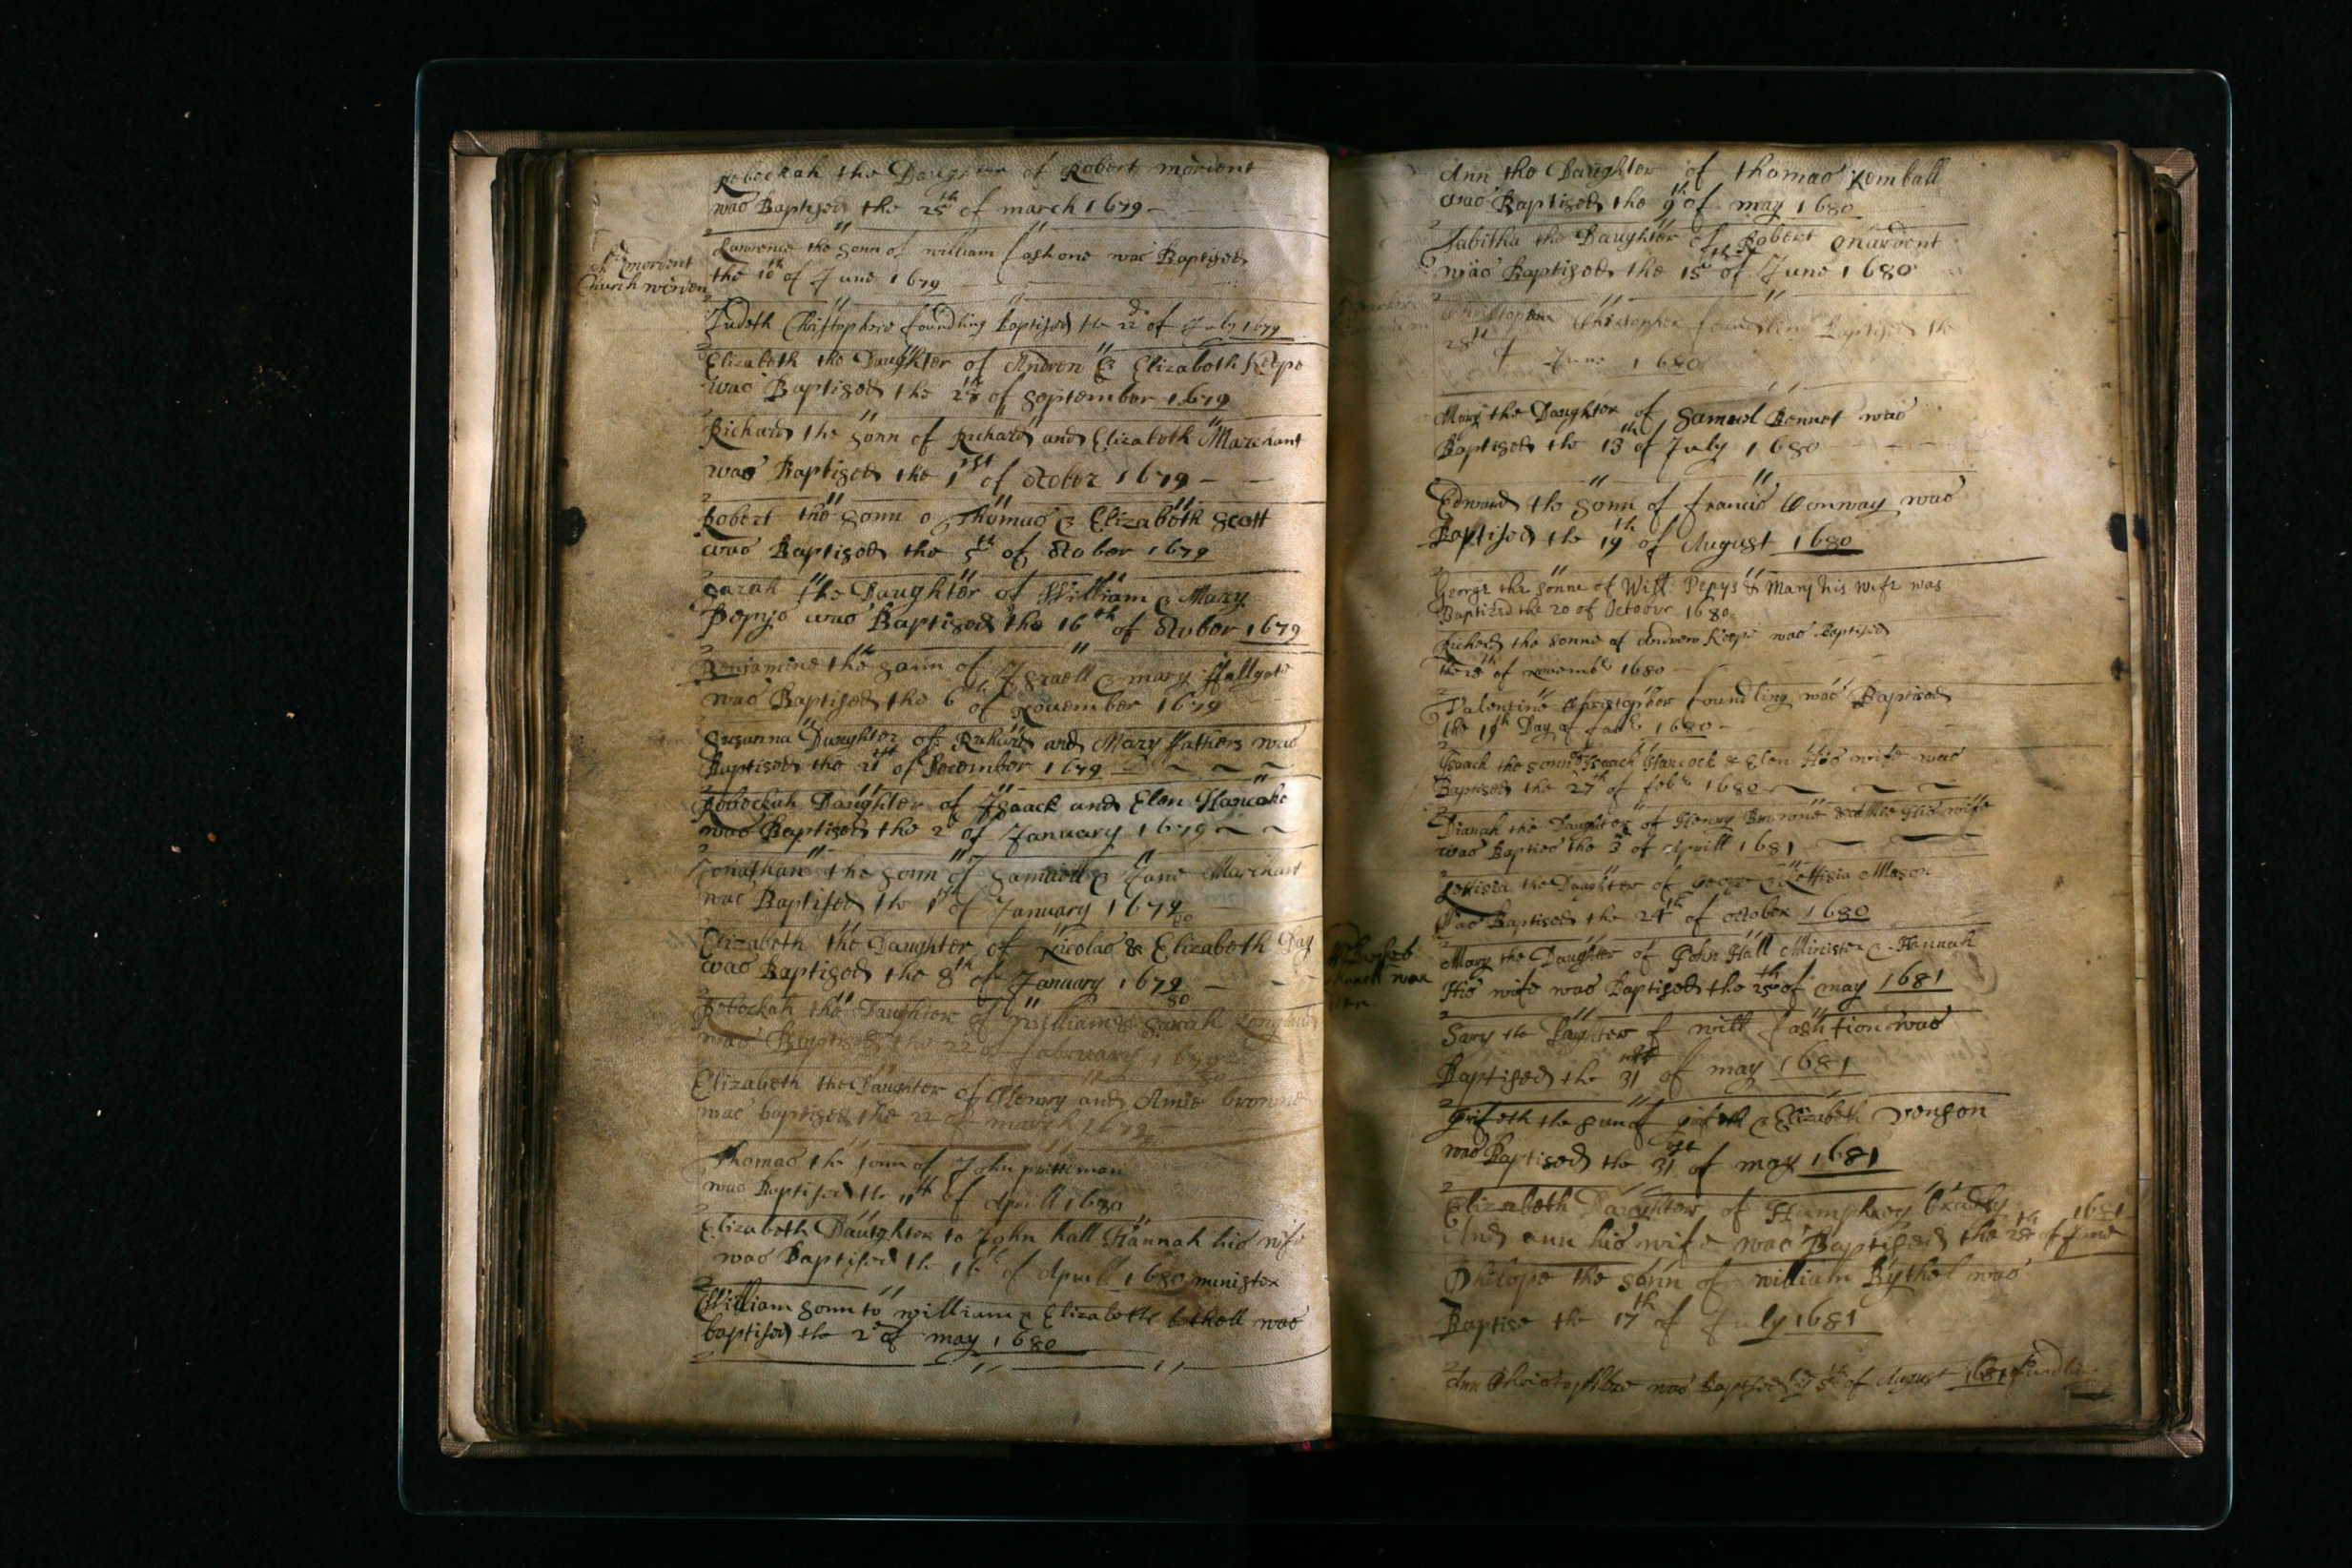 Rebeckah the Daughter of Robert morient
was Baptised the 25th of march 1679
Lawrence the sonn of william fashone was Baptised
the 10th of June 1679
morient
Church warden
Judeth Christophers foundling Baptised the 22d of July 1679
Elizabeth the Daughter of Andrew & Elizabeth Keepe
was Baptised the 28th of September 1679
Richard the sonn of Richard and Elizabeth Marchant
was Baptised the 1st of October 1679
Robert the sonn of Thomas & Elizabeth Scott
was Baptised the 5th of Octobor 1679
Sarah the Daughter of William & Mary
Pepys was Baptised the 16th of Octobor 1679
Benjamine the sonn of Israell & mary ffallgate
was Baptised the 6th of November 1679
Susanna Daughter of Richard and Mary ffathers was
Baptised the 21th of December 1679
Rebeckah Daughter of Isaack and Elen Hancoke
was Baptised the 2d of January 1679
Jonathan the sonn of Samuell & Jane Marchant
was Baptised the 1st of January 1679/80
Elizabeth the Daughter of Nicolas & Elizabeth Day
was Baptised the 8th of January 1679/80
Rebeckah the Daughter of William & Sarah
was Baptised the 22 of february 1679/80
Elizabeth the Daughter of Henry and Amie browne
was baptised the 22 of march 1679
Thomas the sonn of John prittiman
was Baptised the 11th of Aprill 1680
Elizabeth Daughter to John hall Hannah his wife
was Baptised the 16th of Aprill 1680 minister
William sonn to william & Elizabeth bethell was
baptised the 2d of may 1680
Ann the Daughter of thomas Kemball
was Baptised the 9th of may 1680
Tabitha the Daughter of Robert Mardent
was Baptised the 15th of June 1680
Christopher Christopher foundling Baptised the
28th of June 1680
Mary the Daughter of Samuel Bennet was
Baptised the 13th of July 1680
Edward the sonn of francis Conway was
Baptised the 19th of August 1680
George the sonne of Will: Pepys & Mary his wife was
Baptized the 20 of October 1680
Richerd the sonne of Andrew Keepe was Baptised
the 28th of novemb 1680
Valentine Christopher foundling was Baptised
the 19th Day of feb 1680
Isaack the sonn of Isaack Hancock & Elen His wife was
Baptised the 27th of feb 1680
Dianah the Daughter of Henry Browne & His wife
was Baptised the 3d of Aprill 1681
Lettisia the Daughter of George & Lettisia Mason
was Baptised the 24th of october 1680
Mary the Daughter of John Hall Minister & Hannah
His wife was Baptised the 25th of may 1681
Church war
den
Sary the Daughter of will fashtion was
Baptised the 31st of may 1681
Grifeth the sunn of grifeth & Elizabeth
was Baptised the 31st of may 1681
Elizabeth Daughter of Humphrey bradly
And ann his wife was Baptised the 28th of June 1681
Philope the sonn of william Bythel was
Baptise the 17th of July 1681
Ann Christopher was Baptised ye 5th of August 1681 foundling